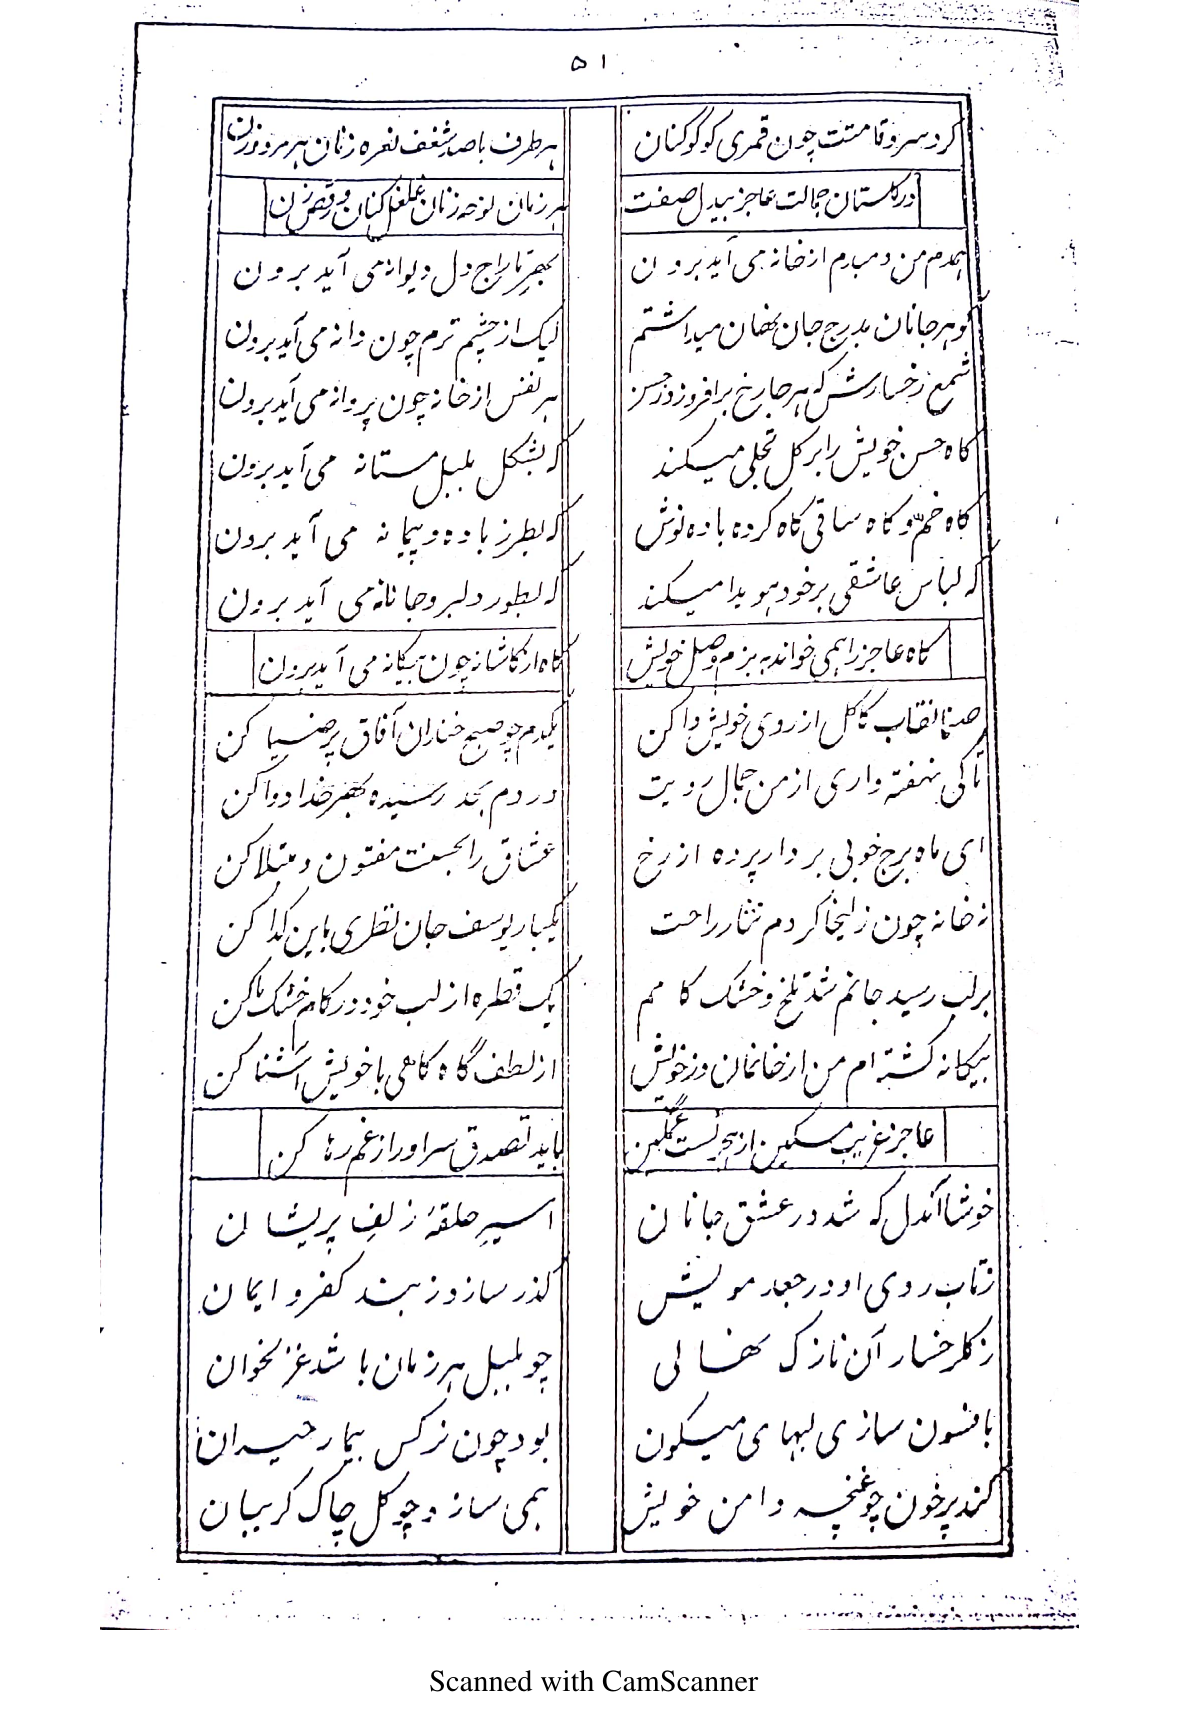 ۵۱
کرد سرو قامتت چون قمری کوکو کنان	هر طرف با صد شغف نعره زنان هر مرو زن
در کلستان جمالت عاجز بیدل صفت	هر زمان نوحه زنان غلغل کنان و رقص زن
همدم من دمبارم از خانه می آید برون	بهر تاراج دل دیوانه می آید برون
کوهر جانان بدرج جان نهان میداشتم	لیک از چشم ترم چون دانه می آید برون
شمع رخسارش که هر جا رخ برافروزد ز حسن	هر نفس از خانه چون پروانه می آید برون
کاه حسن خویش را بر کل تجلی میکند	که بشکل بلبل مستانه می آید برون
کاه خم و کاه ساقی کاه کرده باده نوش	که بطرز باده و پیمانه می آید برون
که لباس عاشقی بر خود هویدا میکند	که بطور دلبر و جانانه می آید برون
کاه عاجز را همی خواند به بزم وصل خویش	کاه از کاشانه چون بیکانه می آید برون
صنما نقاب کاکل از روی خویش وا کن	یکدم چو صبح خندان آفاق پر ضیا کن
تا کی نهفته داری از من جمال رویت	دردم بحد رسیده بهر خدا دوا کن
ای ماه برج خوبی بردار پرده از رخ	عشاق را بحسنت مفتون و مبتلا کن
نه خانه چون زلیخا کردم نثار راحت	یکبار یوسف جان نظری باین کدا کن
بر لب رسید جانم شد تلخ و خشک کامم	یک قطره از لب خود در کام خشک ما کن
بیکانه کشته ام من از خانمان و ز خویش	از لطف گاه کاهی با خویش آشنا کن
عاجز غریب مسکین از هجر تست غمگین	باید تصدق سر او را ز غم رها کن
خوشا آندل که شد در عشق جانان	اسیر حلقهٔ زلف پریشان
ز تاب روی او در جعد مویش	کذر سازد ز بند کفر و ایمان
ز کلرخسار آن نازک نهالی	چو بلبل هر زمان باشد غزلخوان
بافسون سازی لبهای میکون	بود چون نرکس بیمار حیران
کند پر خون چو غنچه دامن خویش	همی سازد چو کل چاک کریبان
Scanned with CamScanner